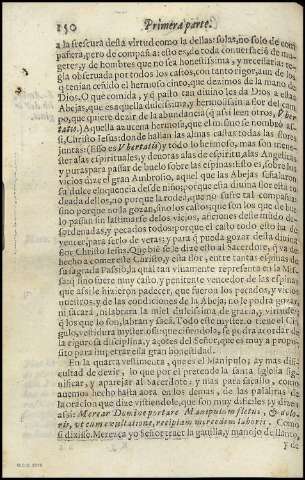 150 Primera parte.
a la frescura desta virtud como la dellas: solas, no solo de com
pañera, pero de compañia: esto es, de toda conuersació de mu
geres, y de hombres que no sea honestissima, y necessaria: re-
gla obseruada por todos los castos, con tanto rigor, aun de los
q tenian ceñido el hermoso cinto, que dezimos de la mano de
Dios. O que comida, y q pasto tan diuino les da Dios a estas
Abejas, que es aquella dulcissima, y hermosissima flor del cam
po, que quiere dezir de la abundancia (q assi leen otros, Vber
tatis.) Aquella azucena hermosa, que el mismo se nombró as-
si, Christo Iesus: donde hallan las almas castas todas las flores
juntas: (Esso es Vbertatis) y todo lo hermoso, mas son menes-
ter alas espirituales, y denotas alas de espiritu, alas Angelicas
y puras para passar de buelo sobre las espinas: esto es, sobre los
vicios dize el gran Ambrosio, aquel que las Abejas señalaron
su dulce eloquencia desde niño: porque esta diuina flor està ro
deada dellos, no porque la rodeé, que no sufre tal compañia:
sino porque no la gozan, sino los castos que son los que de bue
lo passan sin lastimarse de los vicios, aficiones deste mũdo de-
sordenadas, y pecados todos: porque el casto todo esto ha de
vencer, para serlo de veras: y para q pueda gozar desta diuina
flor Christo Iesus. Que biē se le dize esto al Sacerdote, q va de
hecho a comerse Christo, y esta flor, entre tantas espinas de
su sagrada Passió, la qual tan viuamente representa en la Mis-
sa: q sino fuere muy casto, y penitente vencedor de las espinas
que assi le hizieron padecer, que fueron los pecados, y vicios
nuestros, y de las condiciones de la Abeja; no le podrá gozar,
ni sacará, ni labrará la miel dulcissima de gracia, y virtudes,
q los que lo son, labran y saca. Todo este mysterio tiene el Cin
gulo, vestidura mysteriosa: que ciñendolo, se podrá acordar de
la rigurosa disciplina, y açotes del Señor, que es muy a propo-
sito para impetrar esta gran honestidad.
En la quarta vestimenta, que es el Manipulo; ay mas difi-
cultad de dezir, lo que por el pretende la santa Iglesia sig-
nificar, y aparejar al Sacerdote: y mas para sacallo, como
auemos hecho hasta aora en los demas, de las palabras de
la oracion que dize vistiendole, que son muy dificiles: y dizen
assi: Merear Domine portare Manipulum fletus, & dolo-
ris, vt cum exultatione, recipiam mercedem laboris. Como
si dixesse. Merezca yo Señor traer la gauilla, y manojo de llanto,
y de